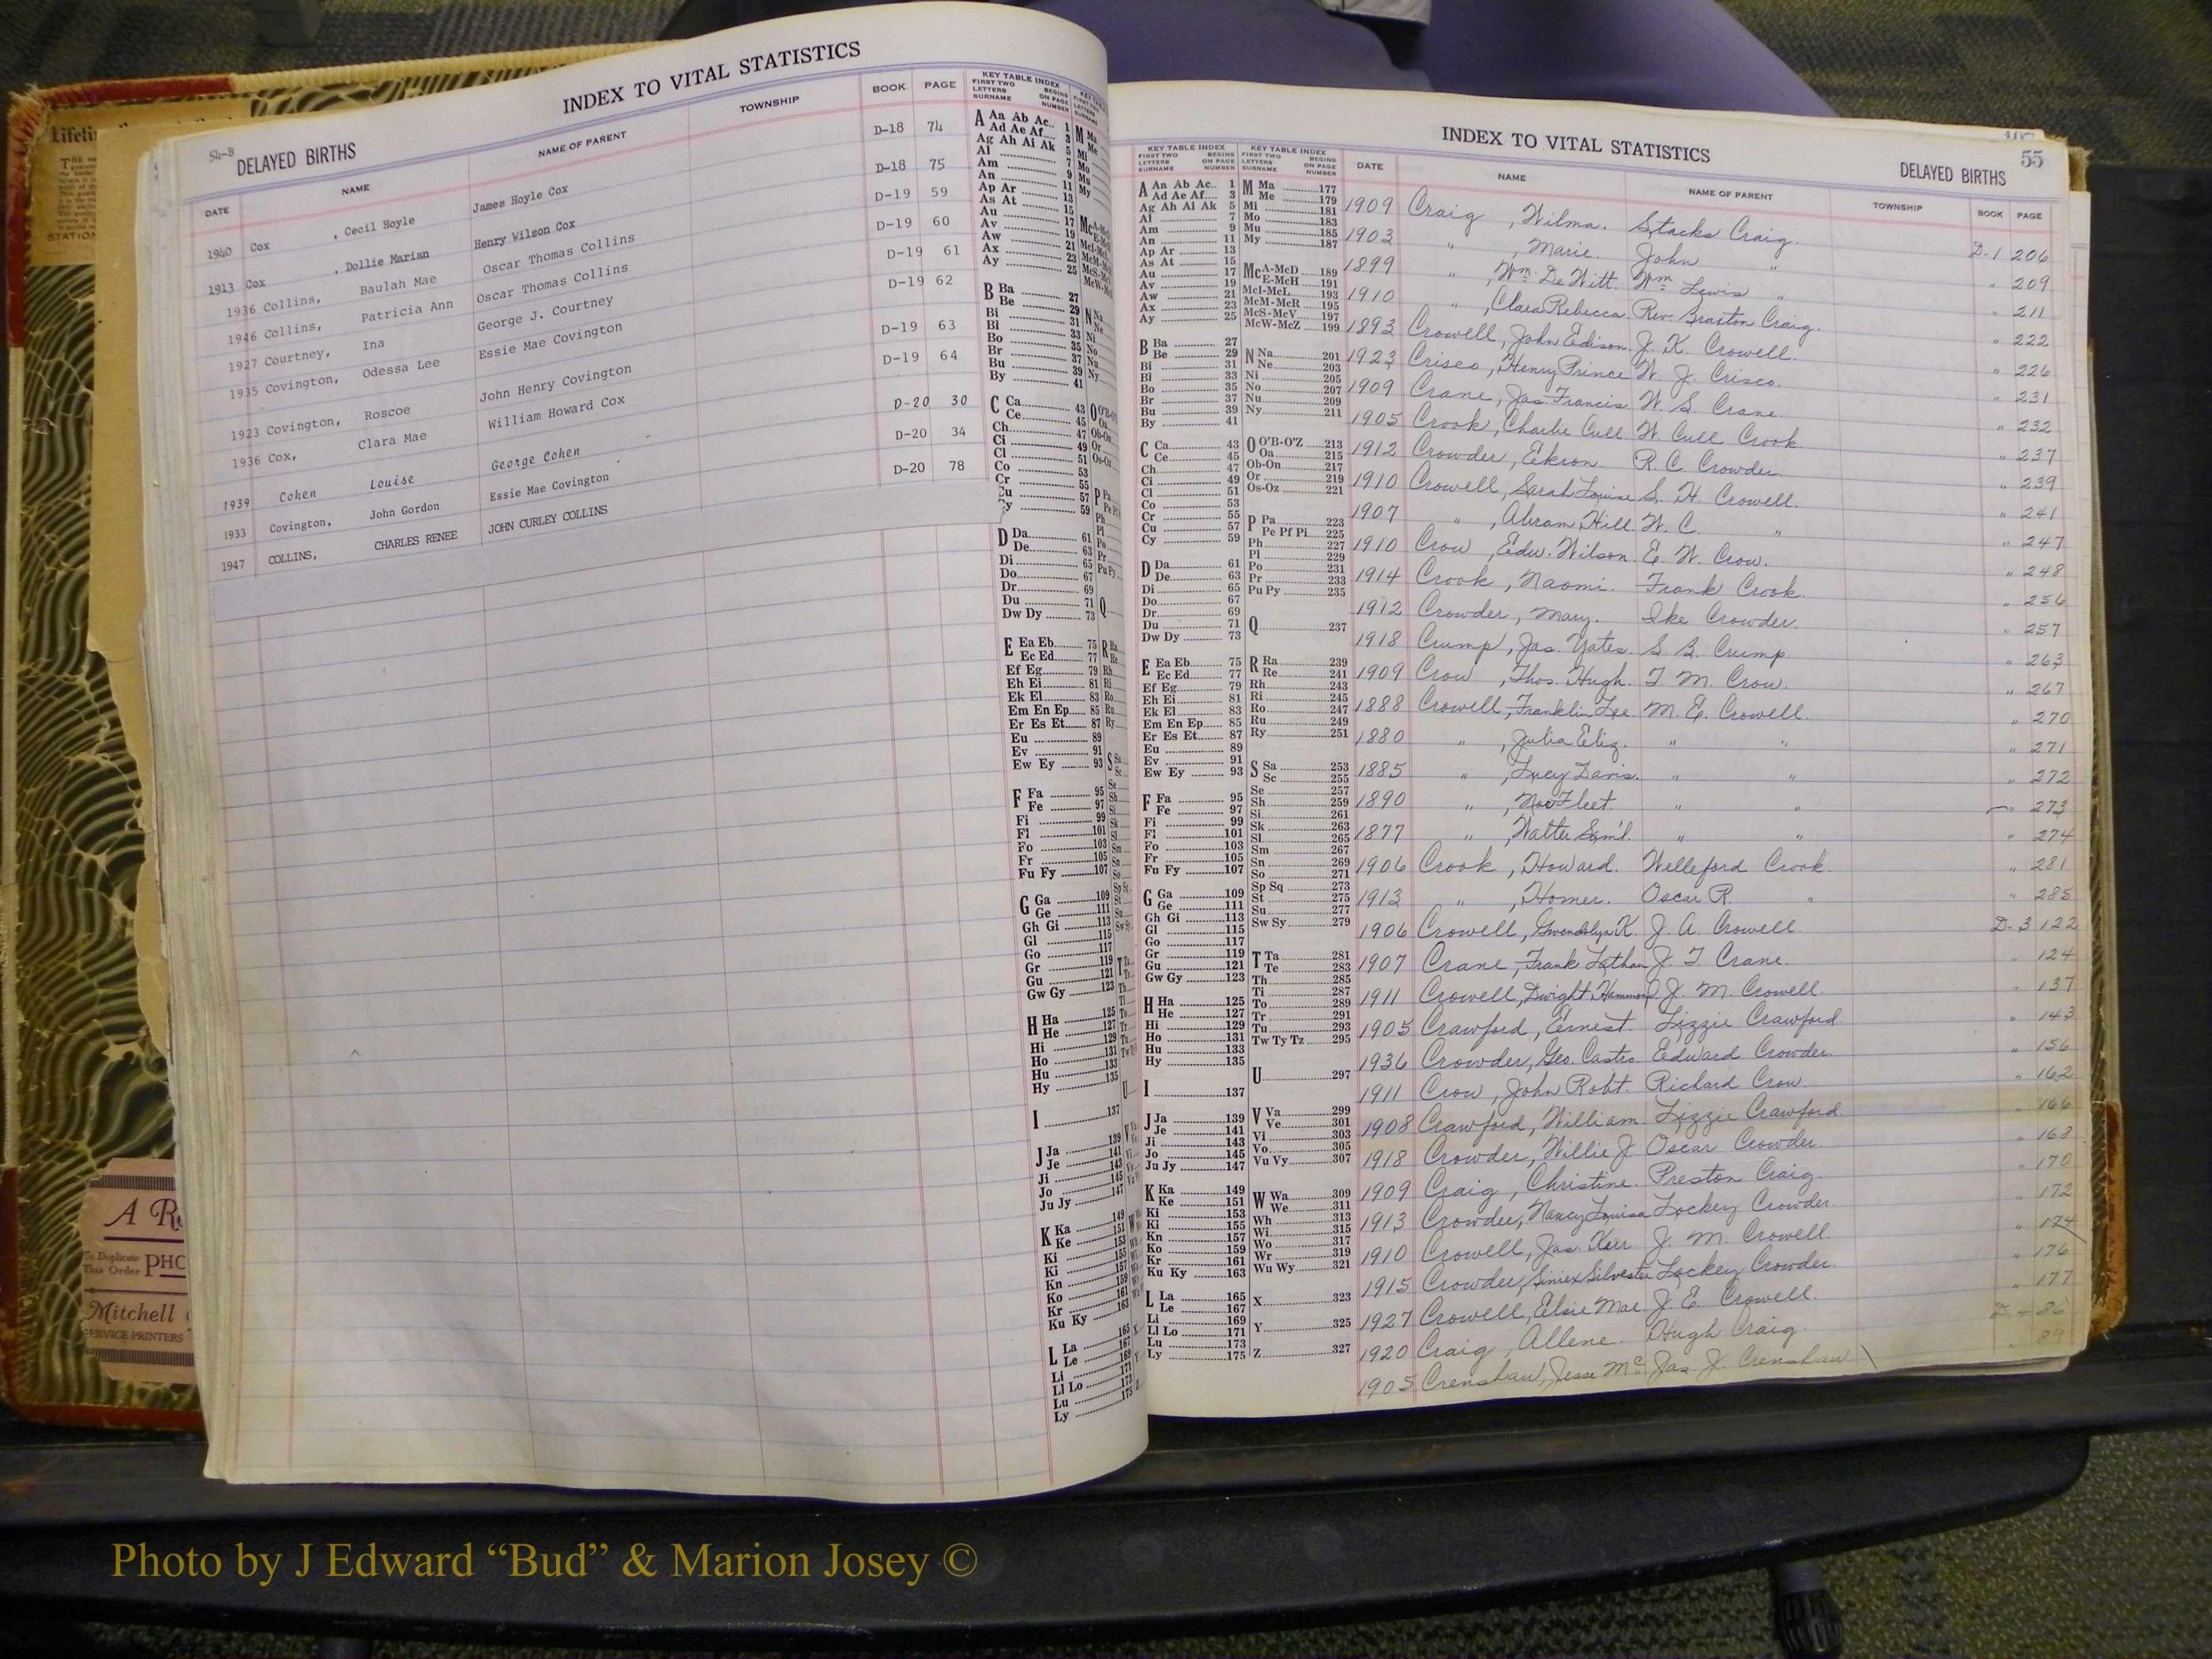 INDEX TO VITAL STATISTICS
54-B DELAYED BIRTHS
DATE NAME NAME OF PARENT TOWNSHIP BOOK PAGE
1940 Cox , Cecil Hoyle James Hoyle Cox D-18 74
1913 Cox , Dollie Marian Henry Wilson Cox D-18 75
1936 Collins, Baulah Mae Oscar Thomas Collins D-19 59
1946 Collins, Patricia Ann Oscar Thomas Collins D-19 60
1927 Courtney, Ina George J. Courtney D-19 61
1935 Covington, Odessa Lee Essie Mae Covington D-19 62
1923 Covington, Roscoe John Henry Covington D-19 63
1936 Cox, Clara Mae William Howard Cox D-19 64
1939 Cohen Louise George Cohen D-20 30
1933 Covington, John Gordon Essie Mae Covington D-20 34
1947 COLLINS, CHARLES RENEE JOHN CURLEY COLLINS D-20 78
INDEX TO VITAL STATISTICS
55
DELAYED BIRTHS
DATE NAME NAME OF PARENT TOWNSHIP BOOK PAGE
1909 Craig , Wilma. Stacks Craig. D-1 206
1903 " , Marie. John " " 209
1899 " , Wm. De Witt. Wm Lewis " " 211
1910 " , Clara Rebecca. Rev. Braxton Craig. " 222
1893 Crowell, John Edison. J. K. Crowell. " 226
1923 Crisco, Henry Prince W. J. Crisco. " 231
1909 Crane, Jas. Francis. W. S. Crane. " 232
1905 Crook, Charlie Cull W. Cull Crook " 237
1912 Crowder, Ekron. R. C. Crowder. " 239
1910 Crowell, Sarah Louise S. H. Crowell. " 241
1907 " , Abram Hill. W. C. " " 247
1910 Crow , Edw. Wilson. E. W. Crow. " 248
1914 Crook, Naomi. Frank Crook. " 256
1912 Crowder, Mary. Ike Crowder. " 257
1918 Crump, Jas. Yates. S. B. Crump. " 263
1909 Crow , Thos. Hugh. T. M. Crow. " 267
1888 Crowell, Franklin Lee. M. E. Crowell. " 270
1880 " , Julia Eliz. " " " 271
1885 " , Lucy Davis. " " " 272
1890 " , Fleet. " " 273
1877 " , Walter Sam'l. " " " 274
1906 Crook , Howard. Welleford Crook. " 281
1913 " , Homer. Oscar R. " " 285
1906 Crowell, Gwendolyn K. J. A. Crowell. D-3 122
1907 Crane, Frank Lathan J. T. Crane. " 124
1911 Crowell, Dwight Hammond J. M. Crowell. " 137
1905 Crawford, Ernest. Lizzie Crawford " 143
1936 Crowder, Geo. Castro. Edward Crowder. " 156
1911 Crow , John Robt. Richard Crow. " 162
1908 Crawford, William. Lizzie Crawford. " 166
1918 Crowder, Willie J. Oscar Crowder. " 168
1909 Craig , Christine. Preston Craig. " 170
1913 Crowder, Nancy Louisa Lockey Crowder. " 172
1910 Crowell, Jas. Kerr J. M. Crowell. " 174
1915 Crowder, Silvester Lockey Crowder. " 176
1927 Crowell, Elsie Mae J. E. Crowell. " 177
1920 Craig , Allene. Hugh Craig. 86
1905 Crenshaw, Jesse Mc. Jas. J. Crenshaw. 89
KEY TABLE INDEX
FIRST TWO LETTERS SURNAME BEGINS ON PAGE NUMBER
A Aa Ab Ac 1
Ad Ae Af 3
Ag Ah Ai Ak 5
Al 7
Am 9
An 11
Ap Ar 13
As At 15
Au 17
Av 19
Aw 21
Ax 23
Ay 25
B Ba 27
Be 29
Bi 31
Bl 33
Bo 35
Br 37
Bu 39
By 41
C Ca 43
Ce 45
Ch 47
Ci 49
Cl 51
Co 53
Cr 55
Cu 57
Cy 59
D Da 61
De 63
Di 65
Do 67
Dr 69
Du 71
Dw Dy 73
E Ea Eb 75
Ec Ed 77
Ef Eg 79
Eh Ei 81
Ek El 83
Em En Ep 85
Er Es Et 87
Eu 89
Ev 91
Ew Ey 93
F Fa 95
Fe 97
Fi 99
Fl 101
Fo 103
Fr 105
Fu Fy 107
G Ga 109
Ge 111
Gh Gi 113
Gl 115
Go 117
Gr 119
Gu 121
Gw Gy 123
H Ha 125
He 127
Hi 129
Ho 131
Hu 133
Hy 135
I 137
J Ja 139
Je 141
Ji 143
Jo 145
Ju Jy 147
K Ka 149
Ke 151
Ki 153
Ki 155
Kn 157
Ko 159
Kr 161
Ku Ky 163
L La 165
Le 167
Li 169
Ll Lo 171
Lu 173
Ly 175
M Ma 177
Me 179
Mi 181
Mo 183
Mu 185
My 187
Mc A-McD 189
E-McH 191
McI-McL 193
McM-McR 195
McS-McV 197
McW-McZ 199
N Na 201
Ne 203
Ni 205
No 207
Nu 209
Ny 211
O O'B-O'Z 213
Oa 215
Ob-On 217
Or 219
Os-Oz 221
P Pa 223
Pe Pf Pi 225
Ph 227
Pl 229
Po 231
Pr 233
Pu Py 235
Q 237
R Ra 239
Re 241
Rh 243
Ri 245
Ro 247
Ru 249
Ry 251
S Sa 253
Sc 255
Se 257
Sh 259
Si 261
Sk 263
Sl 265
Sm 267
Sn 269
So 271
Sp Sq 273
St 275
Su 277
Sw Sy 279
T Ta 281
Te 283
Th 285
Ti 287
To 289
Tr 291
Tu 293
Tw Ty Tz 295
U 297
V Va 299
Ve 301
Vi 303
Vo 305
Vu Vy 307
W Wa 309
We 311
Wh 313
Wi 315
Wo 317
Wr 319
Wu Wy 321
X 323
Y 325
Z 327
To Duplicate
This Order
Mitchell
SERVICE PRINTERS
Photo by J Edward “Bud” & Marion Josey ©